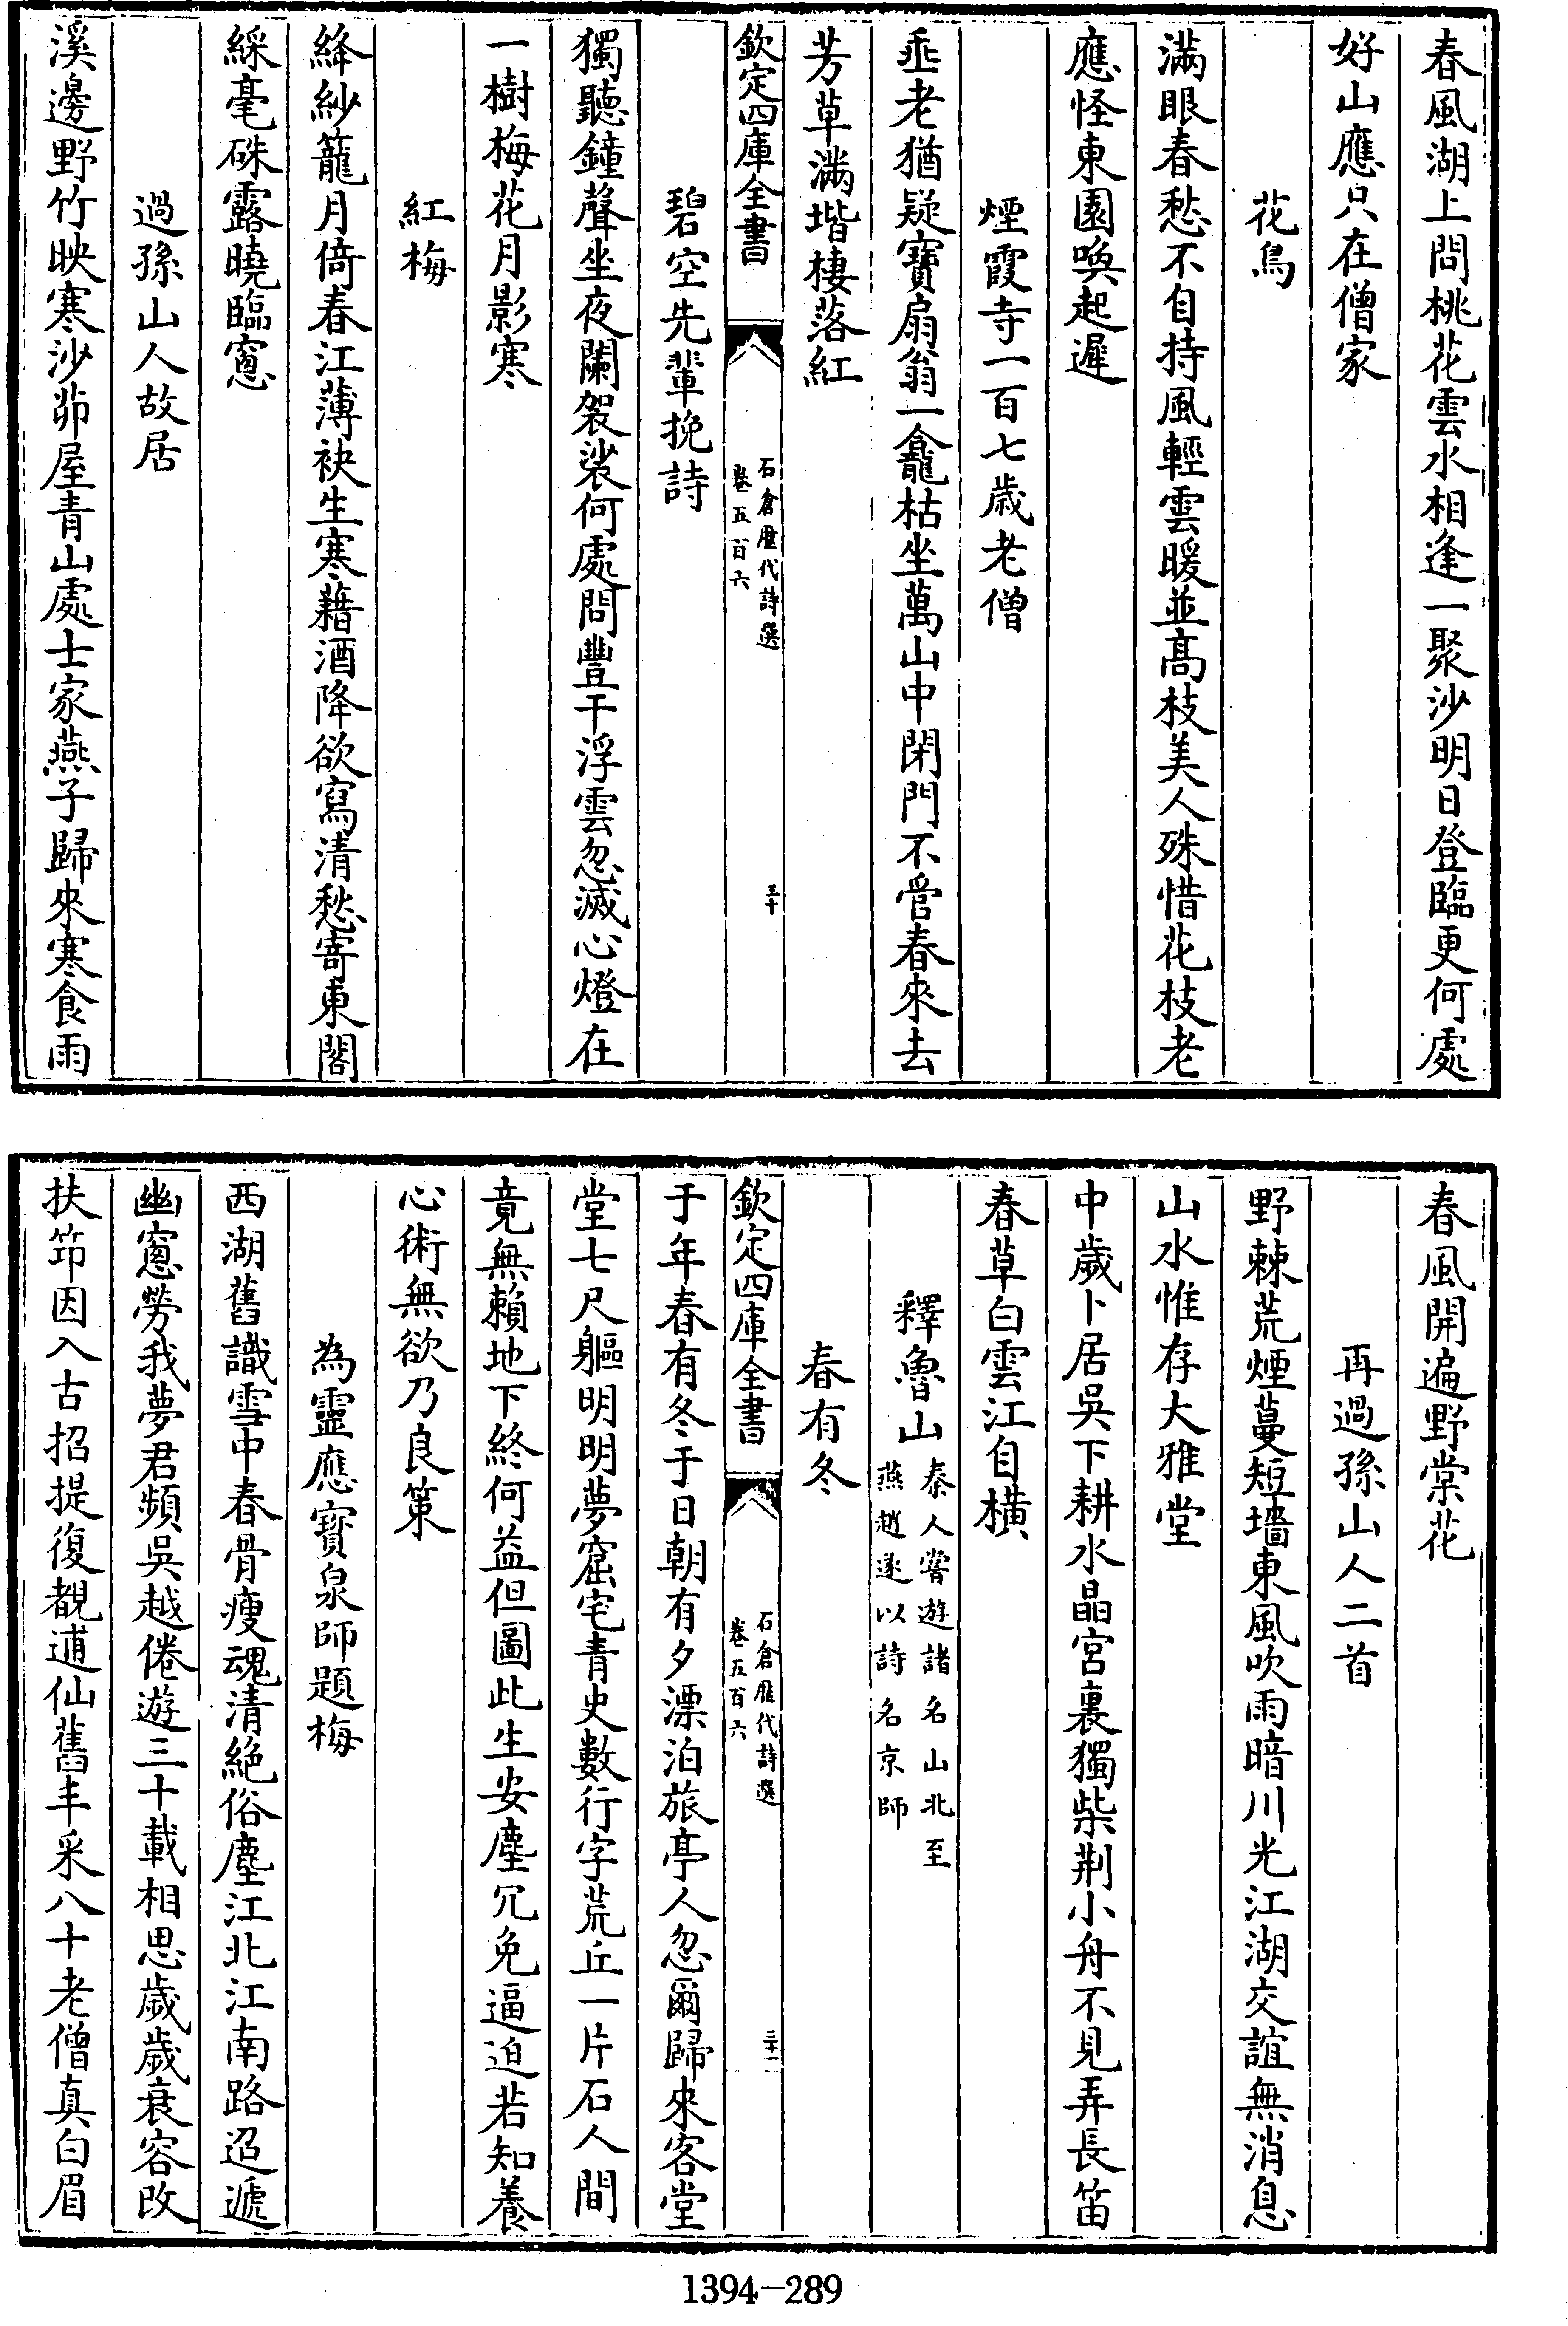 春風湖上問桃花雲水相逢一聚沙明日登臨更何處
好山應只在僧家
花鳥
滿眼春愁不自持風輕雲暖並髙枝美人殊惜花枝老
應怪東園喚起遲
煙霞寺一百七歳老僧
垂老猶疑寶扇翁一龕枯坐萬山中閉門不管春來去
芳草滿堦棲落紅
欽定四庫全書
石倉歴代詩選
卷五百六
三十
碧空先輩挽詩
獨聽鐘聲坐夜闌袈裟何處問豐干浮雲忽滅心燈在
一樹梅花月影寒
紅梅
絳紗籠月倚春江薄袂生寒藉酒降欲寫清愁寄東閣
綵毫硃露曉臨窻
過孫山人故居
溪邊野竹映寒沙茆屋青山處士家燕子歸來寒食雨
春風開遍野棠花
再過孫山人二首
野棘荒煙蔓短墻東風吹雨暗川光江湖交誼無消息
山水惟存大雅堂
中歳卜居吳下耕水晶宮裏獨柴荆小舟不見弄長笛
春草白雲江自橫
釋魯山
秦人嘗遊諸名山北至
燕趙遂以詩名京師
春有冬
欽定四庫全書
石倉歴代詩選
卷五百六
三十一
于年春有冬于日朝有夕漂泊旅亭人忽爾歸來客堂
堂七尺軀明明夢窟宅青史數行字荒丘一片石人間
竟無賴地下終何益但圖此生安塵冗免逼迫若知養
心術無欲乃良策
為靈應寳泉師題梅
西湖舊識雪中春骨瘦魂清絶俗塵江北江南路迢遞
幽窻勞我夢君頻吳越倦遊三十載相思歳歳衰容改
扶笻因入古招提復覩逋仙舊丰采八十老僧真白眉
1394-289